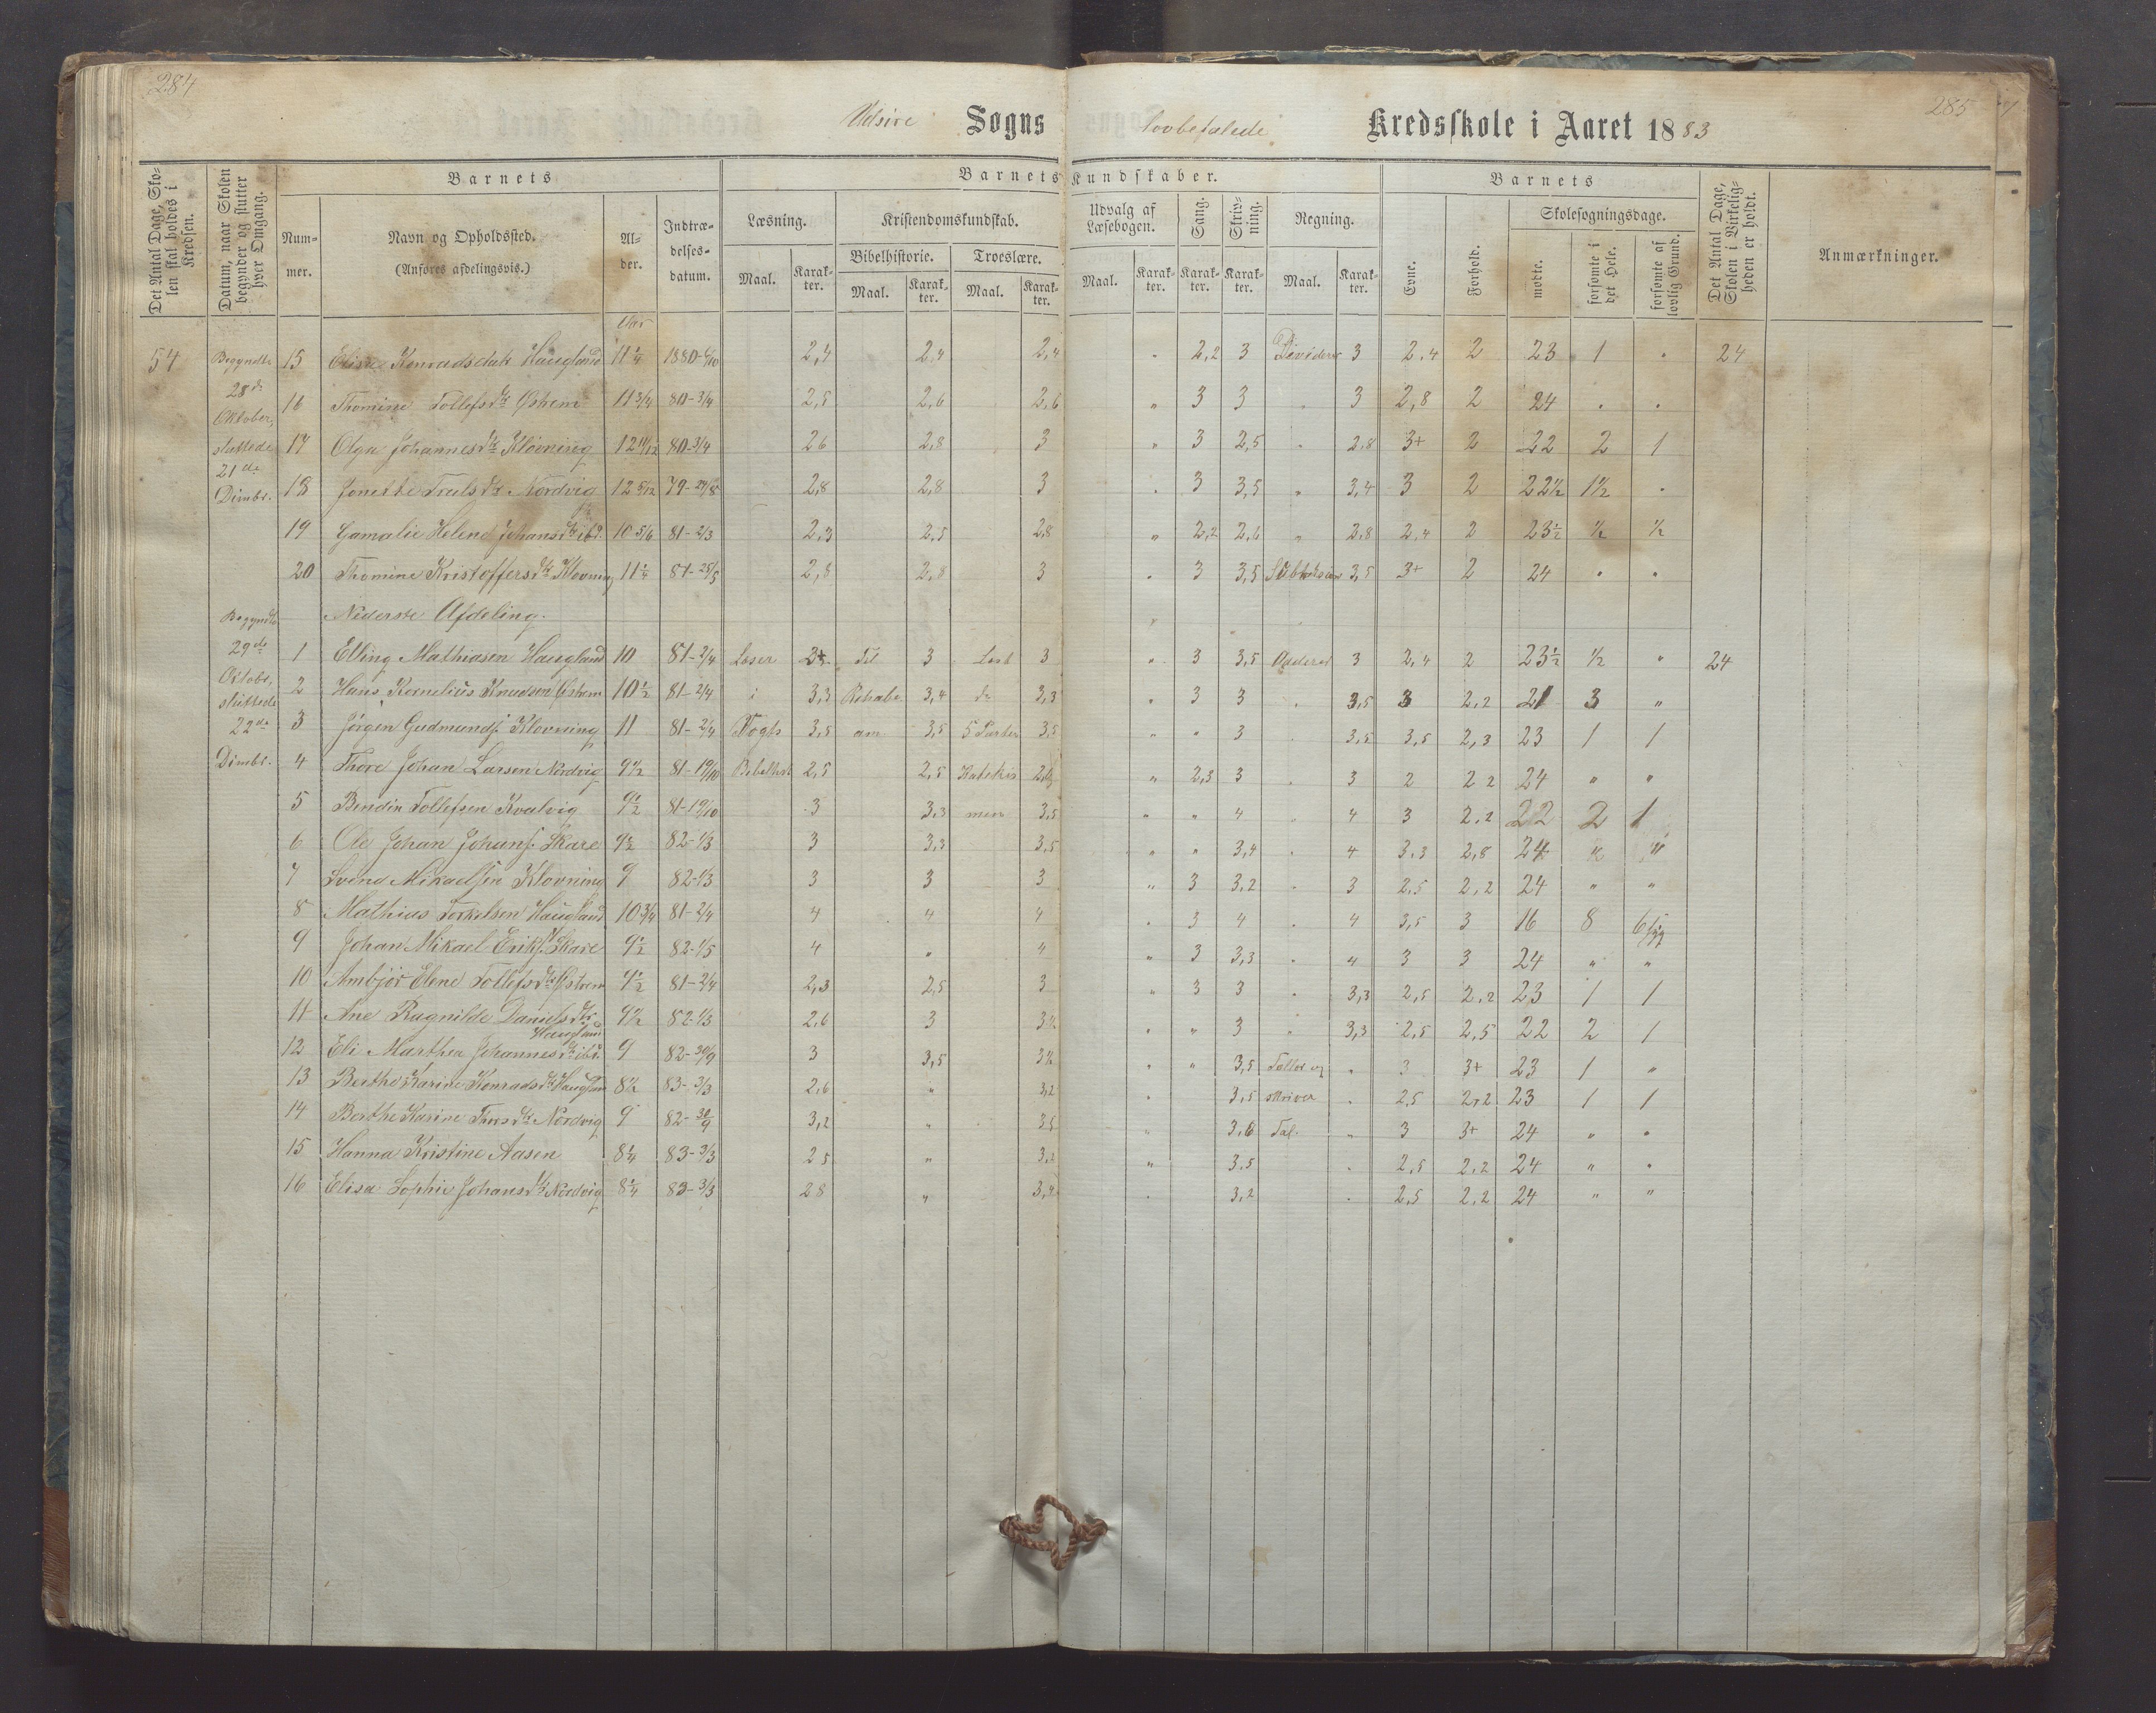 284
285
Udsire Sogns lovbefalede Kredsskole i Aaret 1883
Det Antal Dage, Skolen skal holdes i Kredsen.
Datum, naar Skolen begynder og slutter hver Omgang.
Barnets
Barnets Kundskaber.
Barnets
Det Antal Dage, Skolen i Virkeligheden er holdt.
Anmærkninger.
Nummer.
Navn og Opholdssted. (Anføres afdelingsvis.)
Alder.
Indtrædelsesdatum.
Læsning.
Kristendomskundskab.
Udvalg af Læsebogen.
Sang.
Skrivning.
Regning.
Evne.
Forhold.
Skolesøgningsdage.
Bibelhistorie.
Troeslære.
mødte.
forsømte i det Hele.
forsømte af lovlig Grund.
Maal. Karakter. Maal. Karakter. Maal. Karakter. Maal. Karakter. Karakter. Karakter. Maal. Karakter.
Aar
54 Begyndte 15 Elise Konradsdatr Haugland 11 1/4 1880- 2,4 2,4 2,4 " 2,2 3 Dividerer 3 2,4 2 23 1 " 24
28de Oktober, 16 Thomine Tollefsdtr Østrem 11 3/4 80-3/4 2,5 2,6 2,6 " 3 3 " 3 2,8 2 24 " "
sluttede 17 Olga Johannesdtr Klovning 12 11/12 80-3/4 2,6 2,8 3 " 3 2,5 " 2,8 3+ 2 22 2 1
21de Dcmbr. 18 Jonette Trulsdtr Nordvig 12 5/12 79- 2,8 2,8 3 " 3 3,5 " 3,4 3 2 22½ 1½ "
19 Gamalie Helene Johansdtr ibd. 10 5/6 81-2/3 2,3 2,5 2,8 " 2,2 2,6 " 2,8 2,4 2 23½ ½ ½
20 Thomine Kristoffersdtr Klovning 11 1/4 81-25/5 2,8 2,8 3 " 3 3,5 3,5 3+ 2 24 " "
Nederste Afdeling.
Begyndte
29de 1 Elling Mathiasen Haugland 10 81-2/4 Læser 3+ Til 3 Læst 3 " 3 3,5 Adderer 3 2,4 2 23½ ½ " 24
Octobr. 2 Hans Kornelius Knudsen Østrem 10½ 81-2/4 i 3,3 Rehabe 3,4 de 3,3 " 3 3 " 3,5 3 2,2 21 3 "
sluttede
22de 3 Jørgen Gudmunds. Klovning 11 81-2/4 Vogts 3,5 am 3,5 5 Parter 3,5 " " 3 " 3,5 3,5 2,3 23 1 1
Dcmbr. 4 Thore Johan Larsen Nordvig 9½ 81-19/10 Bibelhist 2,5 2,5 Katekis " 2,3 3 " 3 2 2,2 24 " "
5 Bendin Tollefsen Kvalvig 9½ 81-19/10 3 3,3 men 3,5 " " 4 " 4 3 2,2 22 2 1
6 Ole Johan Johans. Skare 9½ 82-1/3 3 3,3 3,5 " " 3,4 " 4 3,3 2,8 24 "
7 Svend Mikaelsen Klovning 9 82-1/3 3 3 3 " 3 3,2 " 3 2,5 2,2 24 " "
8 Mathias Torkelsen Haugland 10 3/4 81-2/4 4 4 4 " 3 4 " 4 3,5 3 16 8 6 syg
9 Johan Mikael Eriks. Skare 9½ 82-1/5 4 " 4 " 3 3,3 " 4 3 3 24 " "
10 Ambjør Elene Tollefsdtr Østrem 9½ 81-2/4 2,3 2,5 3 " 3 3 " 3,3 2,5 2,2 23 1 1
11 Ane Ragnilde Danielsdtr Haugland 9½ 82-1/3 2,6 3 " " 3 " 3,3 2,5 2,5 22 2 1
12 Eli Marthea Johannesdtr ibd. 9 82-30/9 3 3,5 " " 3,5 Tæller og " 3 3+ 23 1 "
13 Berthe Karine Konradsdtr Haugland 8½ 83-3/3 2,6 " 3,2 " 3,5 skriver " 2,5 2,2 23 1 1
14 Berthe Karine Thorsdtr Nordvig 9 82-30/9 3,2 " 3,5 " 3,6 Tal. " 3 3+ 24 " "
15 Hanna Kristine Aasen 8 1/4 83-3/3 2,5 " 3,2 " 3,5 " 2,5 2,2 24 " "
16 Elisa Sophie Johansdtr Nordvig 8 1/4 83-3/3 2,8 " " 3,2 " 2,5 2,2 24 " "